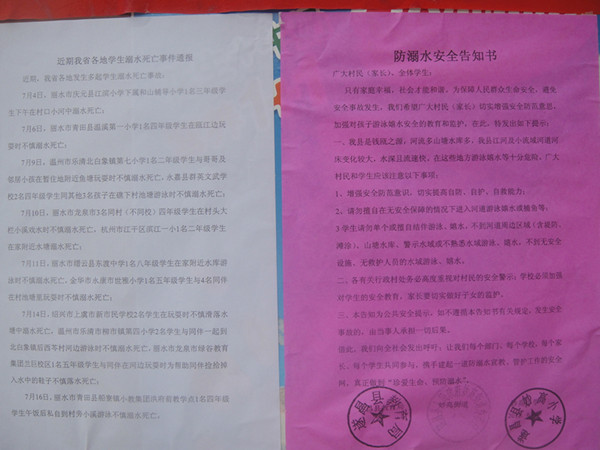 近期我省各地学生溺水死亡事件通报
近期，我省各地发生多起学生溺水死亡事故：
7月4日，丽水市庆元县江滨小学下属和山辅导小学1名三年级学
生下午在村口小河中溺水死亡；
7月6日，丽水市青田县温溪第一小学1名四年级学生在瓯江边玩
耍时不慎溺水死亡；
7月9日，温州市乐清北白象镇第七小学1名二年级学生与哥哥及
邻居小孩在暂住地附近鱼塘玩耍时不慎溺水死亡，永嘉县群英文武学
校2名四年级学生同其他3名孩子在碗下村池塘游泳时不慎溺水死亡；
7月10日，丽水市龙泉市3名同村（不同校）四年级学生在村头大
栏小溪戏水时不慎溺水死亡，杭州市江干区滨江一小1名二年级学生
在家附近水塘溺水死亡；
7月11日，丽水市缙云县东渡中学1名八年级学生在家附近水库游
泳时不慎溺水死亡，金华市永康市世雅小学1名五年级学生与4名同伴
在村池塘里玩耍时不慎溺水死亡；
7月14日，绍兴市上虞市新市民学校2名学生在玩耍时不慎滑落水
塘中溺水死亡，温州市乐清市柳市镇第四小学2名学生与同伴一起到
北白象镇后西岑村河边游泳时不慎溺水死亡，丽水市龙泉市绿谷教育
集团校区1名五年级学生与同伴在河边玩耍时为帮助同伴捡捡掉
入水中的鞋子不慎落水死亡；
7月16日，丽水市青田县船寮镇小教学点1名四年级
学生午饭后私自到村旁小溪游泳不慎溺水死亡。
防溺水安全告知书
广大村民（家长）、全体学生：
只有家庭幸福，社会才能和谐，为保障人民群众生命安全，避免
安全事故发生，我们希望广大村民（家长）切实增强安全防范意识，
加强对孩子游泳嬉水安全的教育和监护。在此，特发出如下提示：
一、我县是钱瓯之源，河流多山塘水库多，我县江河及小流域河道河
床变化较大，水深且流速快，在这些地方游泳嬉水等十分危险。广大
村民和学生应该注意以下事项：
1、增强安全防范意识，切实提高自防、自护、自救能力；
2、请勿擅自在无安全保障的情况下进入河道游泳嬉水或捕鱼等；
3学生请勿单个或擅自结伴游泳、嬉水，不到河道两边区域（含堤防、
滩涂）、山塘水库、警示水域或不熟悉水域游泳、嬉水，不到无安全
设施、无救护人员的水域游泳、嬉水。
二、各有关行政村党务必高度重视对村民的安全警示；学校必须加强
对学生的安全教育，家长要切实做好子女的监护。
三、本告知为公共安全提示，如不遵照本告知书有关规定，发生安全
事故的，由当事人承担一切后果。
谨此，我们向全社会发出呼吁，让我们每个部门、每个学校、每个家
长、每个学生共同参与，携手建起一道防溺水宣教、管护工作的安全
网，真正做到“珍爱生命、预防溺水”。
遂昌县教育局